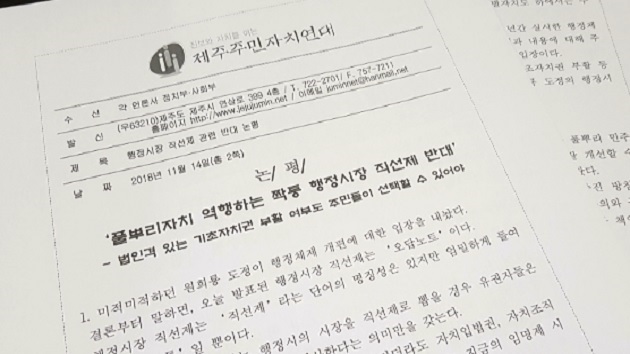 참보와 자치를 위한
제주·주·민자치연대
수 신 각 언론사 정치부·사회부
발 신 (우63210)제주도 제주시 연삼로 399 4층 / T. 722-2701/ F. 757-7211
홈페이지 http://www.jejujumin.net / 이메일 juminnet@hanmail.net
제 목 행정시장 직선제 관련 반대 논평
날 짜 2018년 11월 14일(총 2쪽)
논/ 평/
'풀뿌리자치 역행하는 짝퉁 행정시장 직선제 반대'
- 법인격 있는 기초자치권 부활 여부도 주민들이 선택할 수 있어야
1. 미적미적하던 원희룡 도정이 행정체제 개편에 대한 입장을 내놨다.
결론부터 말하면, 오늘 발표된 행정시장 직선제는 '오답노트'이다.
행정시장 직선제는 '직선제' 라는 단어의 명칭성은 있지만 엄밀하게 들여
일 뿐이다.
행정시의 시장을 직선제로 뽑을 경우 유권자들은
의미만을 갖는다.
자치입법권, 자치조직
지금의 임명제 시
년간 실시한 행정체
과 내용에 대해 주
입장이다.
초자치권 부활 등
후 도정의 행정시
풀뿌리 민주
개선할